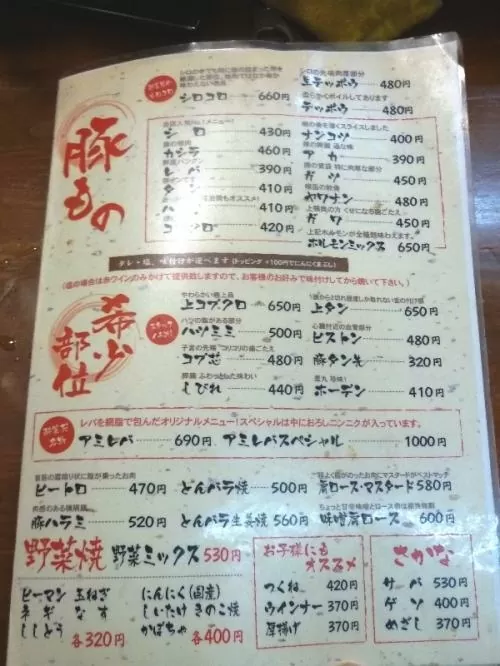 豚もの
シロコロ 660円
上テッポウ 480円
柔らかくボイルしてあります
テッポウ 480円
当店人気No.1メニュー!
シロ 430円
カシラ 460円
レバ 390円
タン 410円
ハツ 410円
コブクロ 420円
ナンコツ 400円
アカ 390円
ガツ 450円
ヤワナン 480円
ガワ 450円
上記ホルモンが全種類味わえます。
ホルモンミックス 650円
タレ・塩、味付けが選べます (トッピング+100円でにんにくまぶし)
(塩の場合は赤ワインのみかけて提供致しますので、お客様のお好みで味付けしてから焼いて下さい。)
希少部位
やわらかい極上品
上コブクロ 650円
上タン 650円
ハツの脂がある部分
ハツミミ 500円
心臓付近の血管部分
ピストン 480円
子宮の先端 コリコリの歯ごたえ
コブ芯 480円
豚タン先 320円
膵臓 ふわっとした味わい
しびれ 440円
睾丸 珍味!
ホーデン 410円
レバを網脂で包んだオリジナルメニュー!スペシャルは中におろしニンニクが入っています。
アミレバ 690円 アミレバスペシャル 1000円
ピートロ 470円
とんバラ焼 500円
程よく脂がのったお肉にマスタードがベストマッチ
肩ロース・マスタード 580円
豚ハラミ 520円
とんバラ生姜焼 560円
味噌肩ロース 600円
野菜焼 野菜ミックス 530円
ピーマン 玉ねぎ
ネギ なす
ししとう 各320円
にんにく(国産)
しいたけ きのこ焼
かぼちゃ 各400円
お子様にもオススメ
つくね 420円
ウインナー 370円
厚揚げ 370円
さかな
サバ 530円
ゲソ 400円
めざし 370円